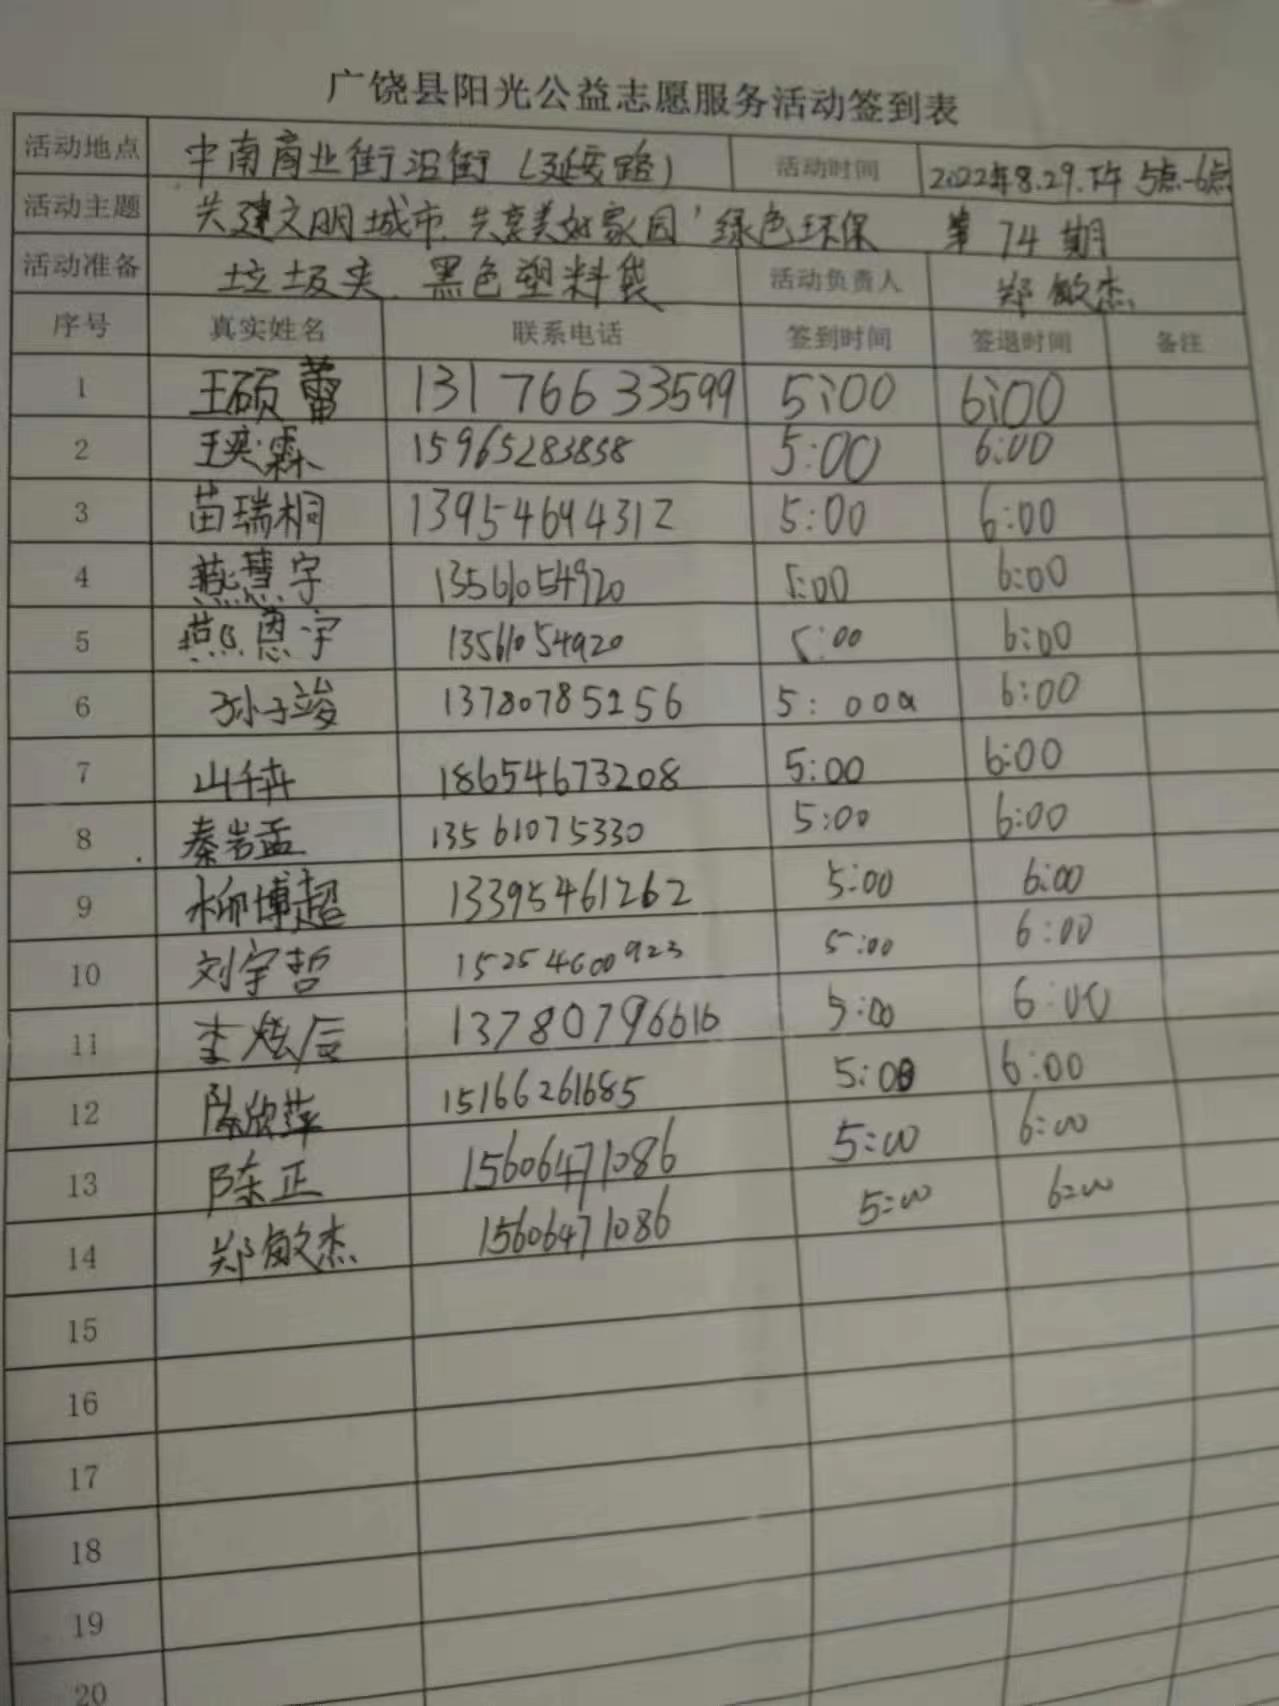 广饶县阳光公益志愿服务活动签到表
活动地点 中南商业街沿街（延安路） 活动时间 2022年8.29.下午 5点-6点
活动主题 共建文明城市,共享美好家园'绿色环保 第74期
活动准备 垃圾夹、黑色塑料袋 活动负责人 郑敏杰
序号 真实姓名 联系电话 签到时间 签退时间 备注
1 王硕蕾 13176633599 5:00 6:00
2 王奕霖 15965283858 5:00 6:00
3 苗瑞桐 13954694312 5:00 6:00
4 燕慧宇 13561054920 5:00 6:00
5 燕恩宇 13561054920 5:00 6:00
6 孙子竣 13780785256 5:00 6:00
7 18654673208 5:00 6:00
8 秦岩孟 13561075330 5:00 6:00
9 柳博超 13395461262 5:00 6:00
10 刘宇哲 15254600923 5:00 6:00
11 李炫辰 13780796616 5:00 6:00
12 陈欣萍 15166261685 5:00 6:00
13 陈正 15606471086 5:00 6:00
14 郑敏杰 15606471086 5:00 6:00
15
16
17
18
19
20